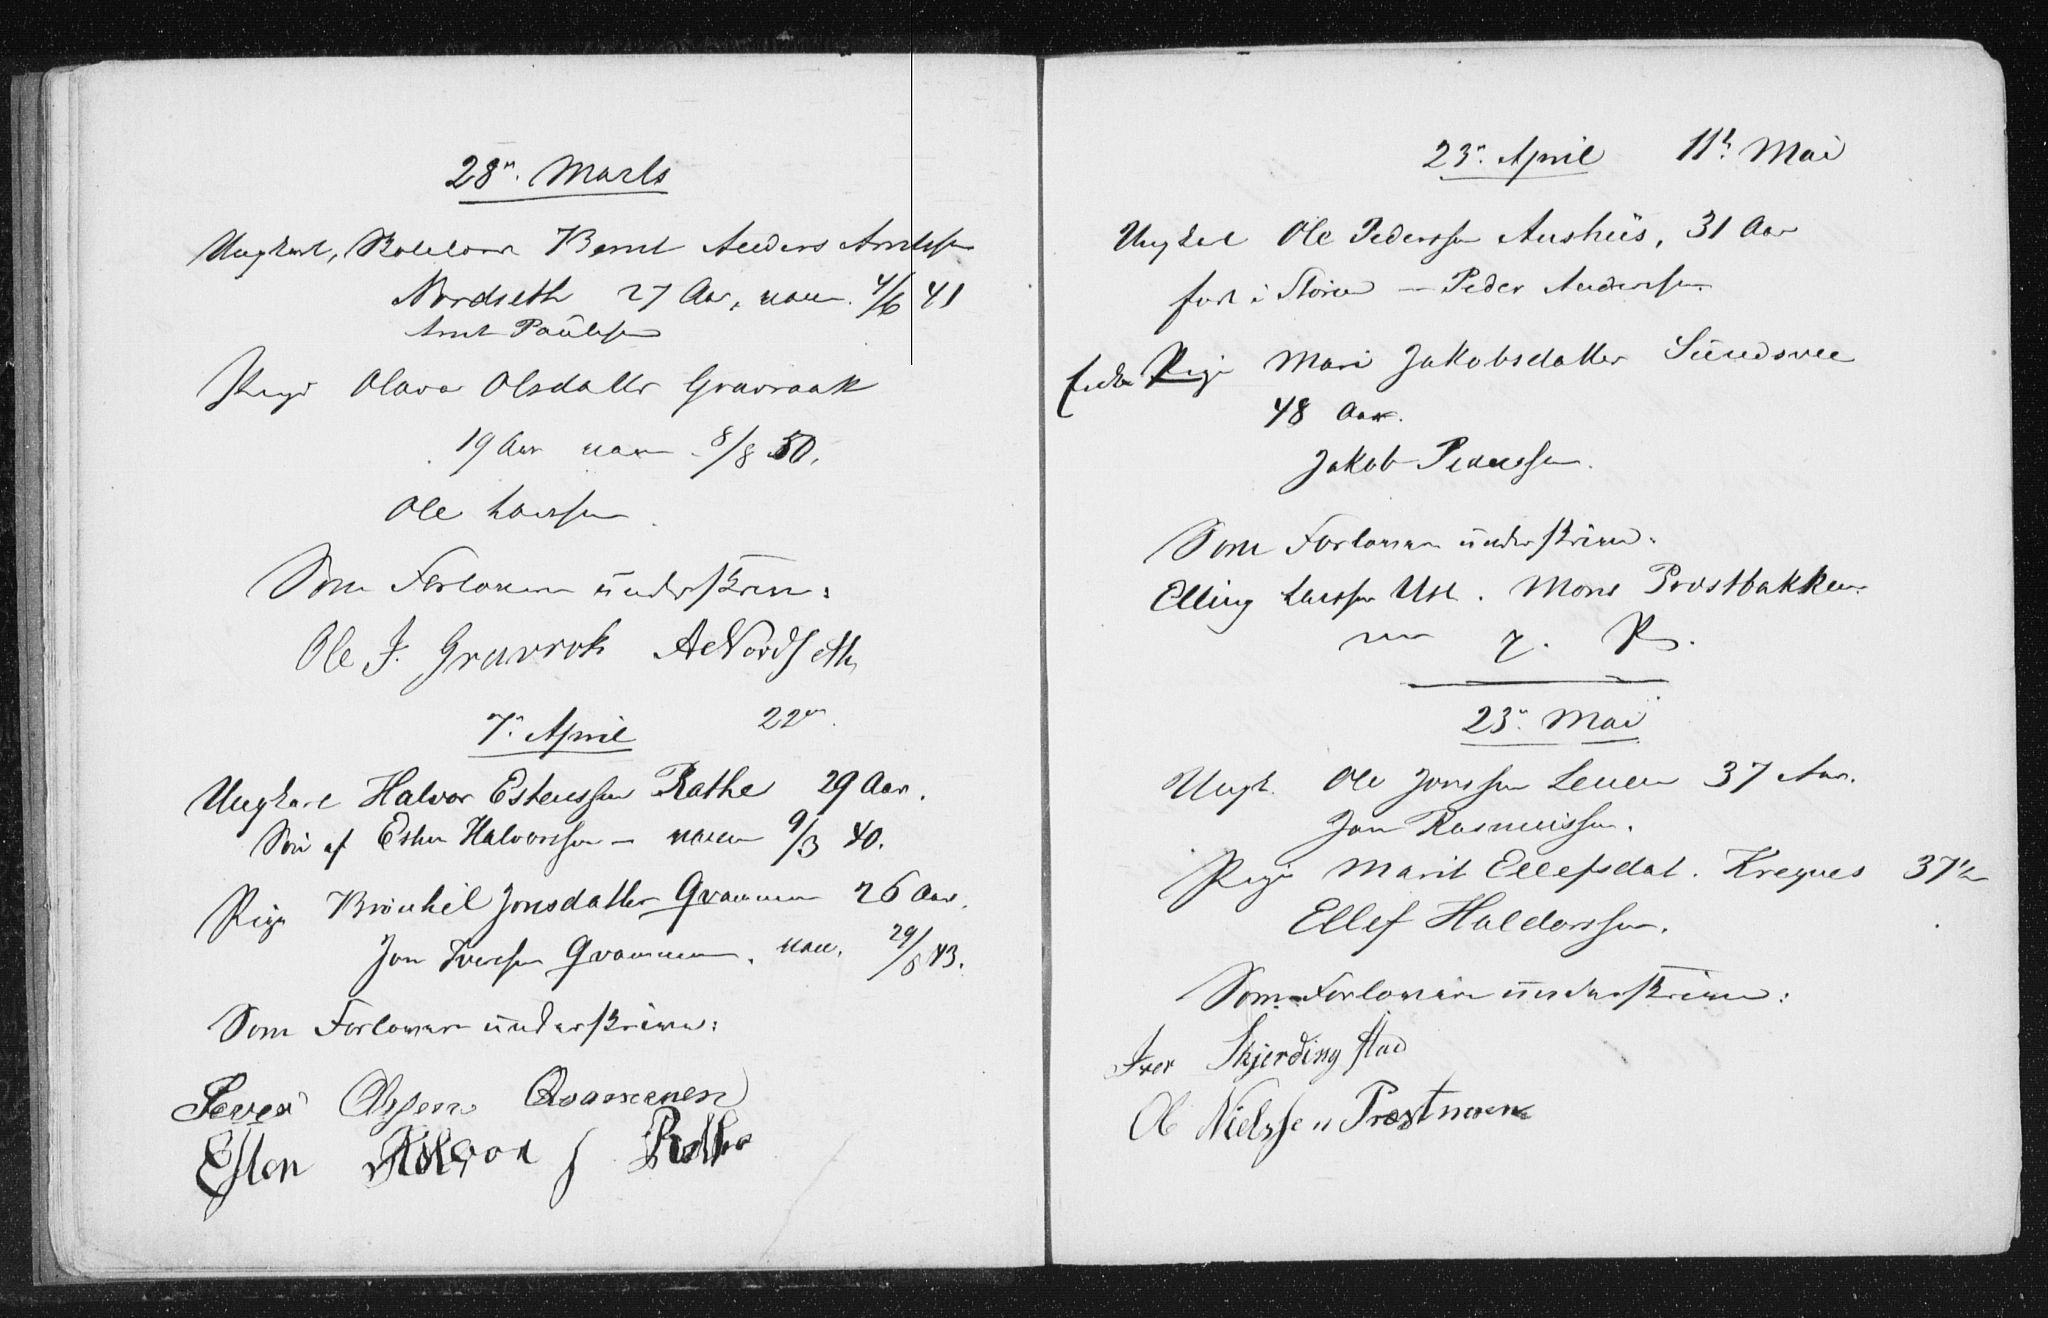 28n. Marts
Ungkarl, Bernt Anders Arntsen
Nordseth 27 Aar, vacc. 4/6 41
Arnt Paulsen
Pige Olava Olsdatter Gravraak
19 Aar vacc 8/8 50.
Ole Larssen
Som Forlovere underskrive:
Ole J. Gravrok A Nordseth
7n. April 22n.
Ungkarl Halvor Estenssen Rathe 29 Aar.
Søn af Esten Halvorssen – vacc 9/3 40.
Pige Brønhil Jonsdatter Qvammen 26 Aar.
Jon Iverssen Qvammen. vacc. 29/6 43.
Som Forlovere underskrive:
Sever Olssen Qvammen
Esten Halvor s Rathe
23n. April 11te Mai
Ungkarl Ole Pederssen Aushus, 31 Aar
født i Støren – Peder Anderssen
Enke Pige Mari Jakobsdatter Sundsvee
48 Aar.
Jakob Pederssen.
Som Forlovere underskrive:
Elling Larssen Ust. Mons Prostbakken.
m P.
23n. Mai
Ungk. Ole Jonssen Lenen 37 Aar.
Jon Rasmussen.
Pige Marit Ellefsdat. Kregnes 37 1/2
Ellef Haldorssen.
Som Forlovere underskrive:
Iver Skjerdingstad
Ole Nielssen Præstmoen